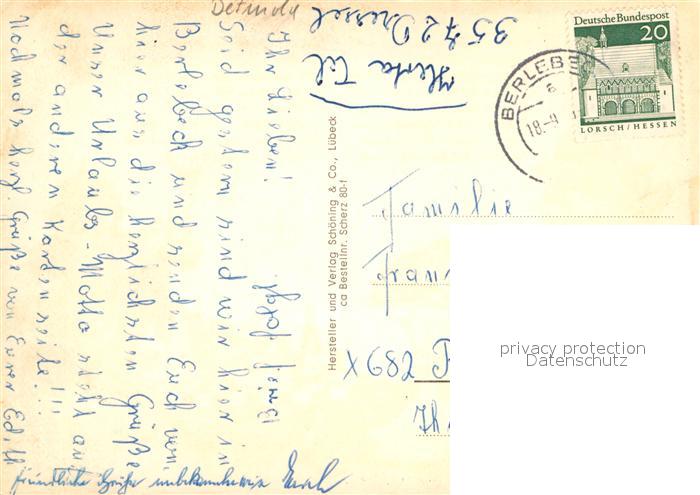 Detmold
Ihr Lieben!
Seid gestern sind wir hier in
Berlebeck und senden Euch von
hier aus die herzlichsten Grüße
Unser Urlaubs-Motto steht auf
der anderen Kartenseite!!!
Nochmals herzl. Grüße von Eurer Edith
freundliche Grüße unbekannterweise
3572
Herta
Deutsche Bundespost
20
LORSCH/HESSEN
BERLEBE
18.-9
Hersteller und Verlag Schöning & Co., Lübeck
ca Bestellnr. Scherz 80-f
Familie
Fran
X 689
privacy protection
Datenschutz